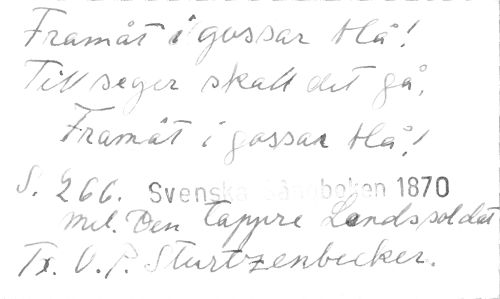 Framåt i gossar blå!
Till seger skall det gå,
Framåt i gossar blå!
S. 266. Svenska Sångboken 1870
mel. Den tappre Landsoldat
Tx. O. P. Sturtzenbecker.